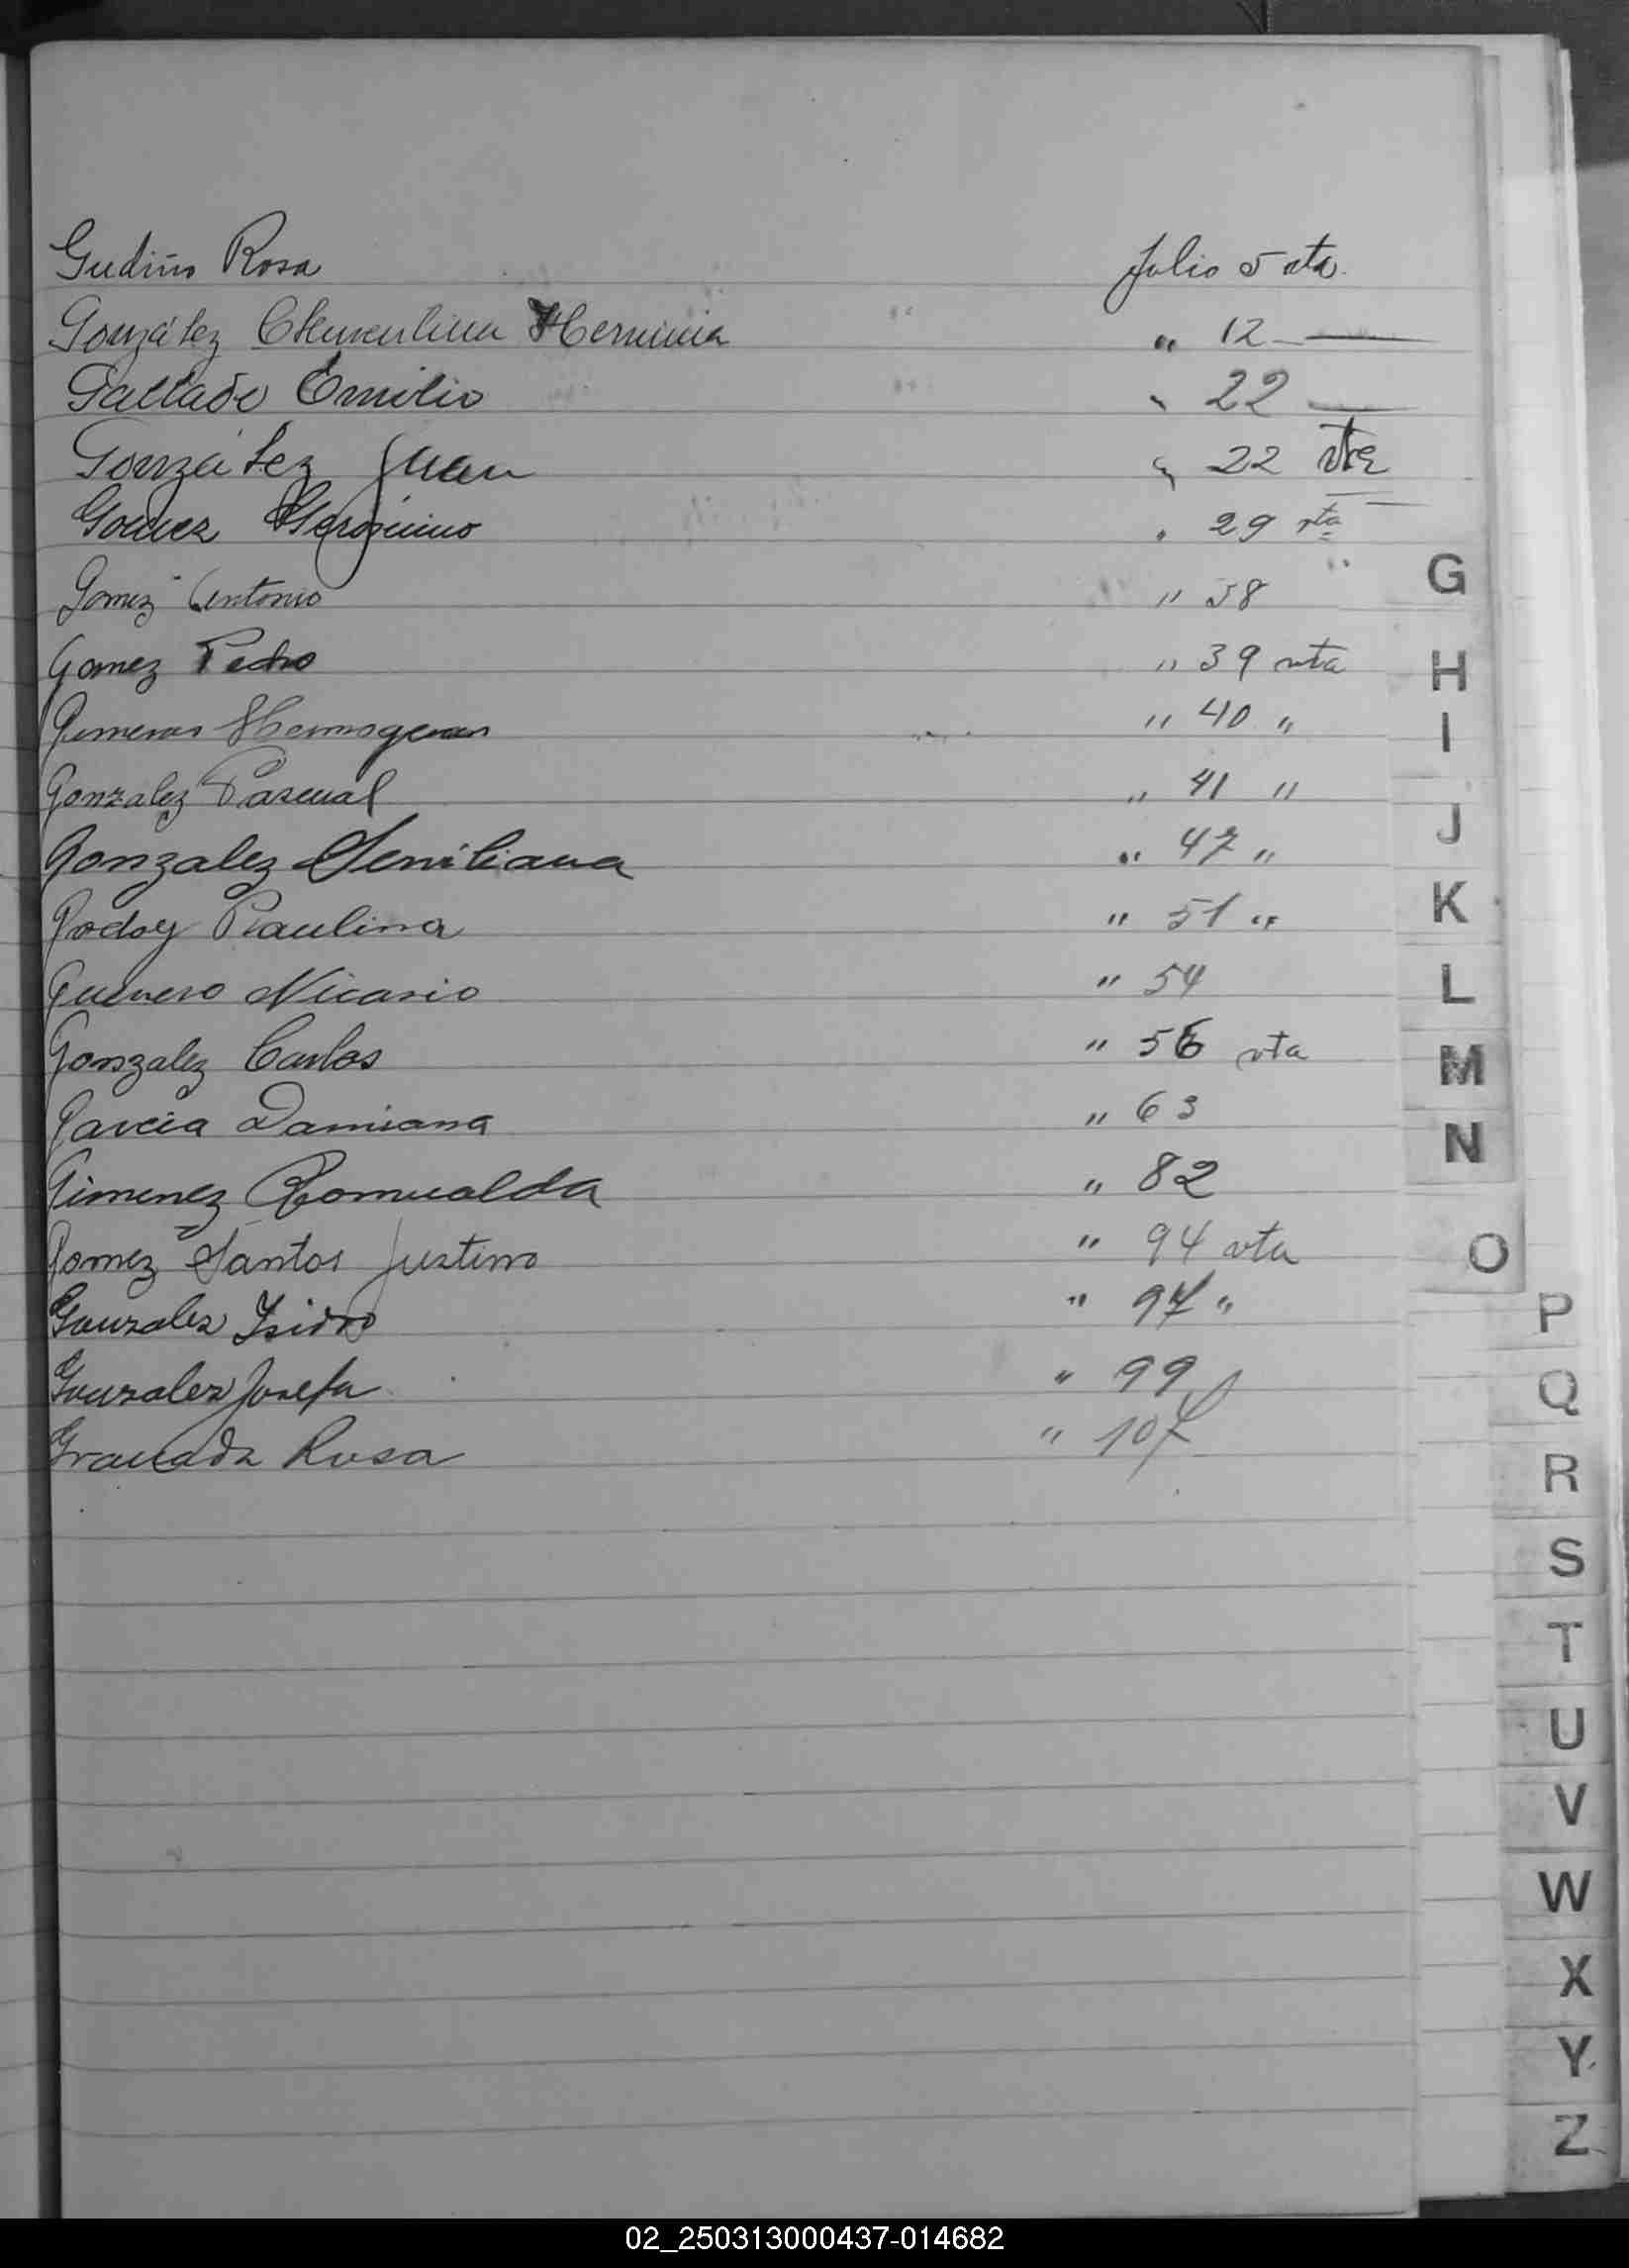 Gudiño Rosa Folio 5 vta.
González Clementina Herminia " 12 —
Gallado Emilio " 22 —
González Juan " 22 vta
Gomez Geronimo " 29 vta
Gomez Antonio " 38
Gomez Pedro " 39 vta
Hermogenes " 40 "
Gonzalez Pascual " 41 "
Gonzalez " 47 "
Godoy Paulina " 51 "
Guerrero Nicasio " 54
Gonzalez Carlos " 56 vta
Garcia Damiana " 63
Gimenez Romualda " 82
Gomez Santos Justino " 94 vta
Gonzalez Isidro " 97 "
Gonzalez Josefa " 99
Granada Rosa " 107
G
H
I
J
K
L
M
N
O
P
Q
R
S
T
U
V
W
X
Y
Z
02_250313000437-014682